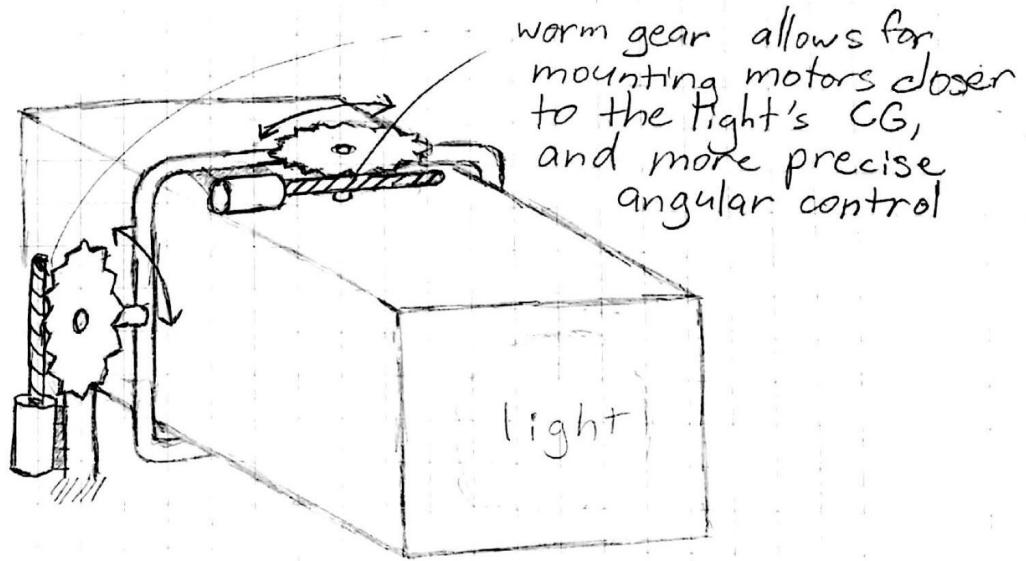 worm gear allows for
mounting motors closer
to the light's CG,
and more precise
angular control
light